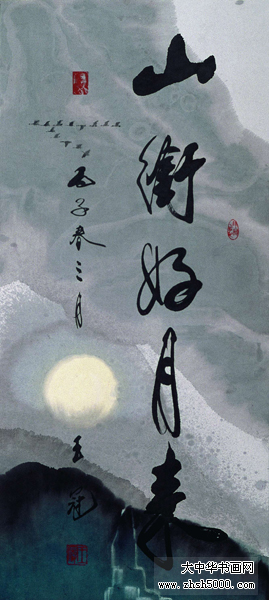 山衔好月来
丙子春三月
王冠
大中华书画网
www.zhsh5000.com